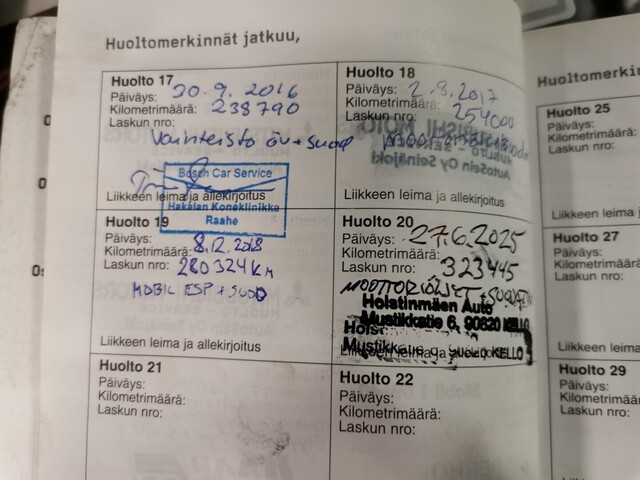 Huoltomerkinnät jatkuu,
Huolto 17
Päiväys: 20.9. 2016
Kilometrimäärä: 238790
Laskun nro:
Vaihteisto öv + suod
Bosch Car Service
Hakalan Koneklinikka
Raahe
Liikkeen leima ja allekirjoitus
Huolto 18
Päiväys: 2.8.2017
Kilometrimäärä: 254000
Laskun nro:
AutoSein Oy Seinäjoki
Liikkeen leima ja allekirjoitus
Huolto 19
Päiväys: 8.12.2018
Kilometrimäärä:
Laskun nro: 280324 KM
MOBIL ESP + SUOD
Liikkeen leima ja allekirjoitus
Huolto 20
Päiväys: 27.6.2025
Kilometrimäärä:
Laskun nro: 323445
MOOTTORIÖLJYT + SUODATIN
Holstinmäen Auto
Mustikkatie 6, 90820 KELLO
Huolto 21
Päiväys:
Kilometrimäärä:
Laskun nro:
Huolto 22
Päiväys:
Kilometrimäärä:
Laskun nro:
Huoltomerkin
Huolto 25
Päiväys:
Kilometrimäärä:
Laskun nro:
Liikkeen leima ja
Huolto 27
Päiväys:
Kilometrimäärä:
Laskun nro:
Liikkeen leima ja
Huolto 29
Päiväys:
Kilometrimäärä:
Laskun nro: